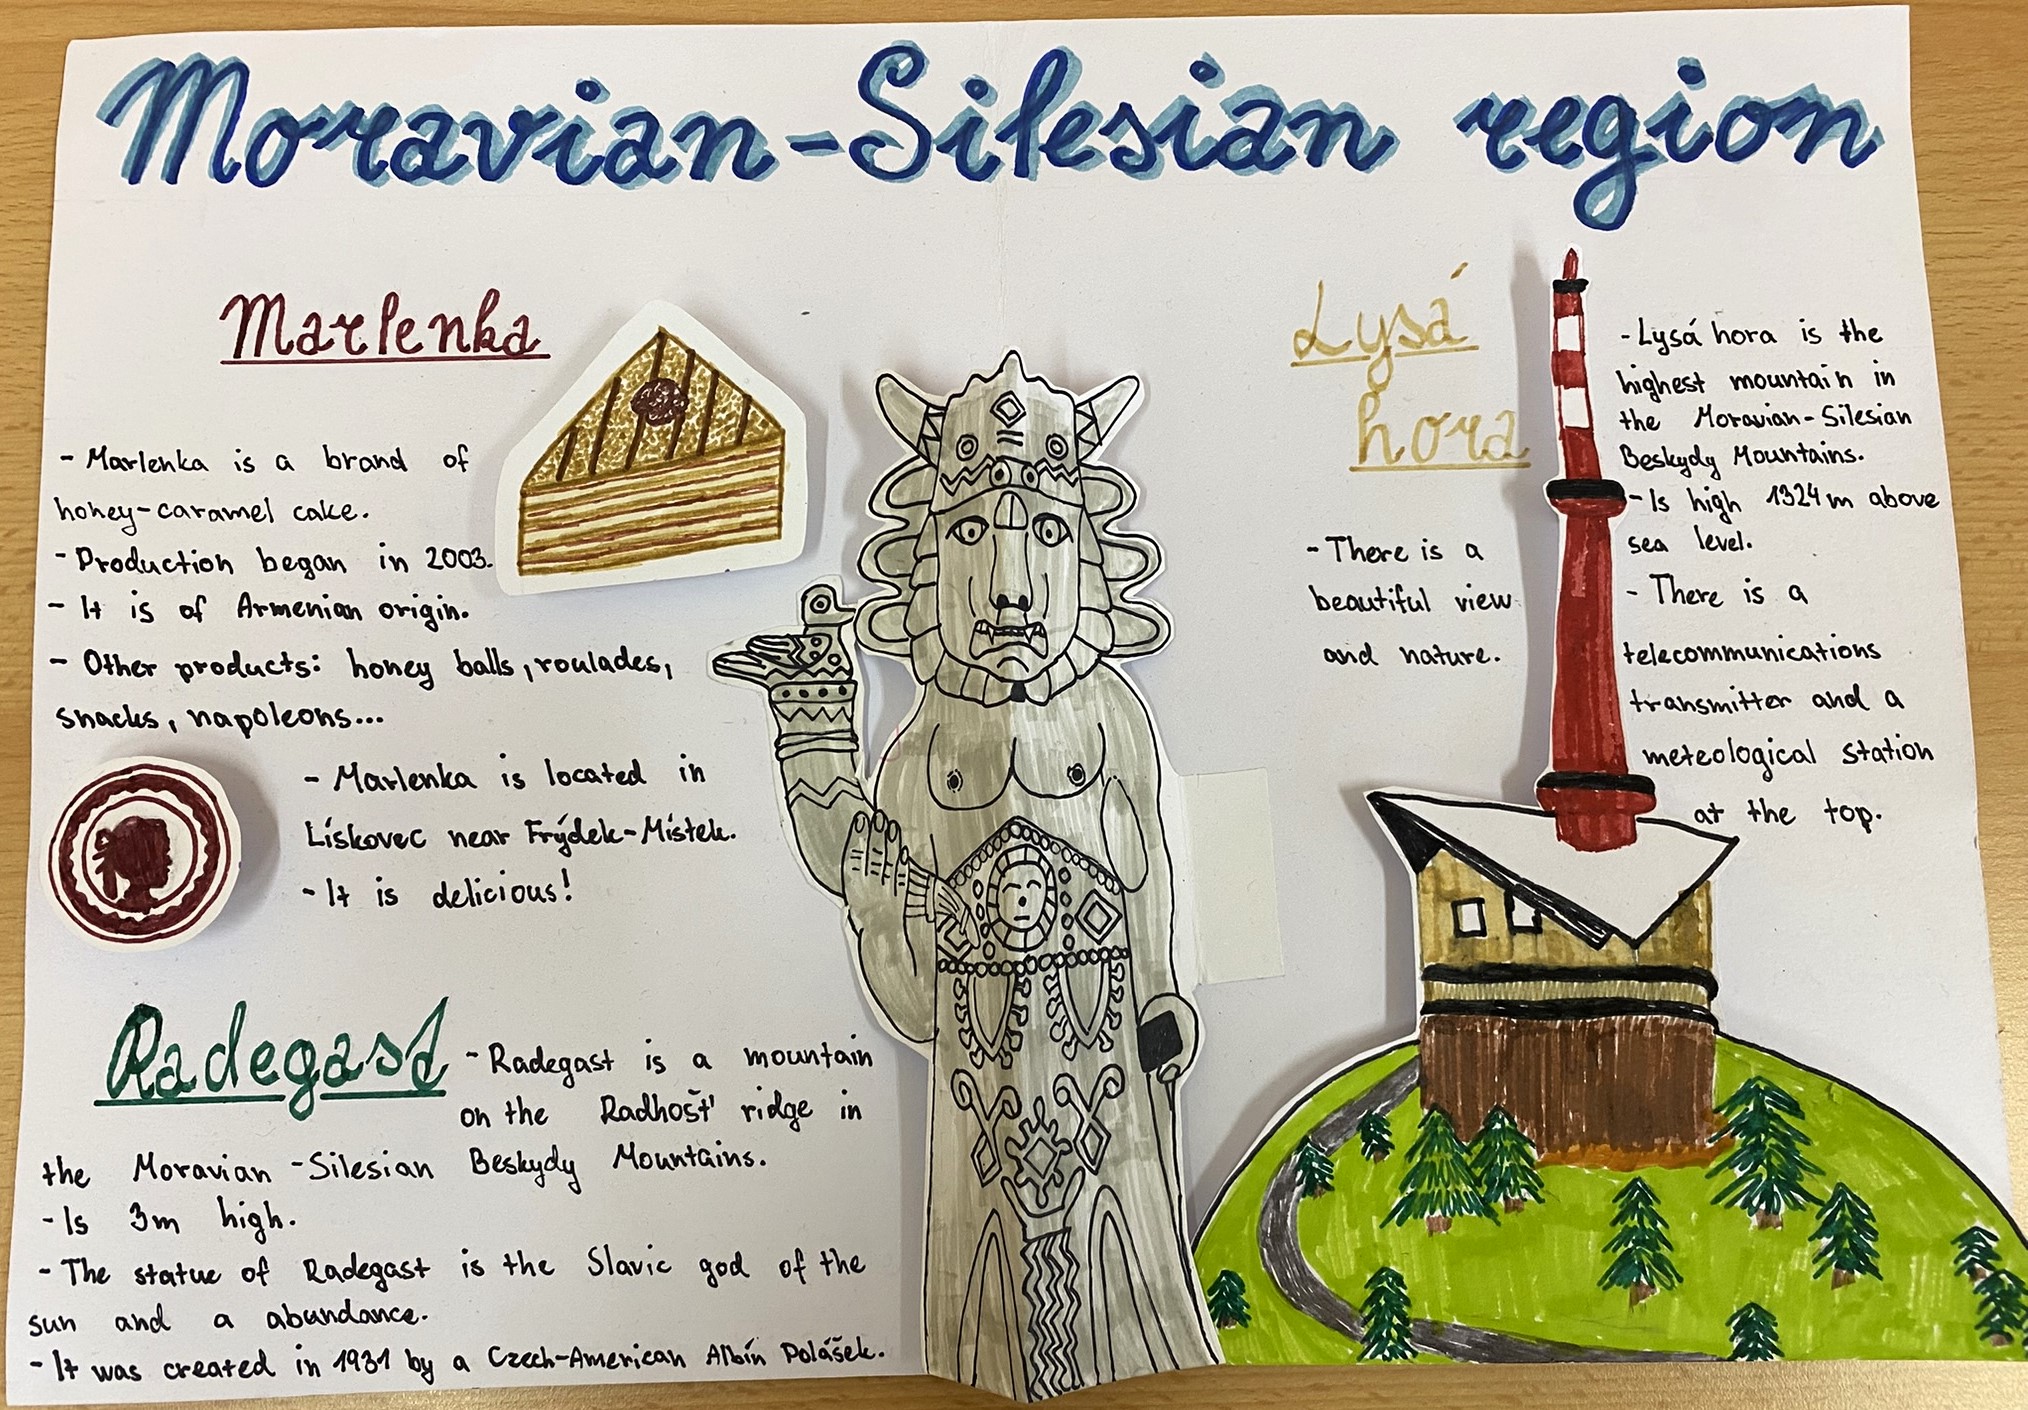 Moravian-Silesian region
Marlenka
- Marlenka is a brand of
honey-caramel cake.
- Production began in 2003.
- It is of Armenian origin.
- Other products: honey balls, roulades,
snacks, napoleons...
- Marlenka is located in
Lískovec near Frýdek-Místek.
- It is delicious!
Radegast
- Radegast is a mountain
on the Radhošť ridge in
the Moravian-Silesian Beskydy Mountains.
- Is 3m high.
- The statue of Radegast is the Slavic god of the
sun and a abundance.
- It was created in 1931 by a Czech-American Albín Polášek.
Lysá
hora
- There is a
beautiful view
and nature.
- Lysá hora is the
highest mountain in
the Moravian-Silesian
Beskydy Mountains.
- Is high 1324m above
sea level.
- There is a
telecommunications
transmitter and a
meteological station
at the top.